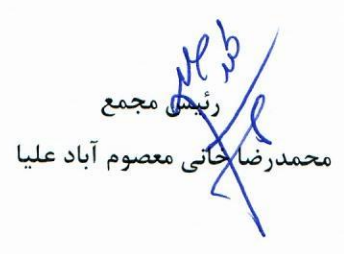 رئیس مجمع
محمدرضا خانی معصوم آباد علیا